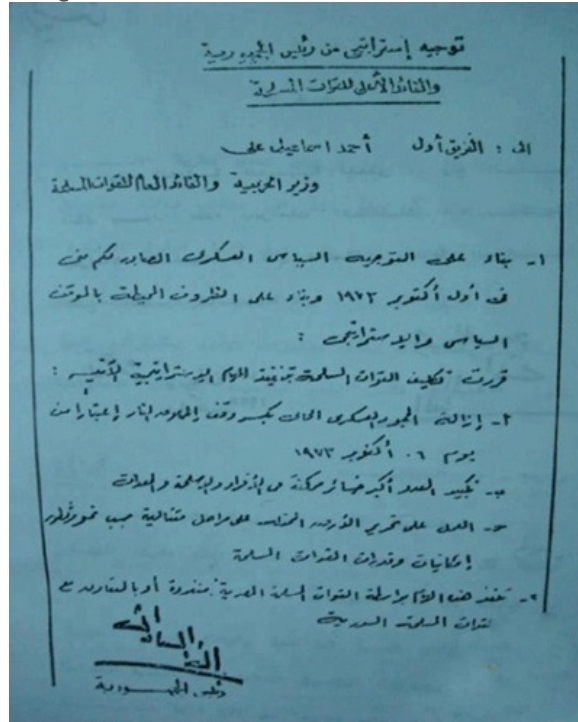 توجيه إستراتيجى من رئيس الجمهورية
والقائد الأعلى للقوات المسلحة
الى : الفريق أول أحمد اسماعيل على
وزير الحربية والقائد العام للقوات المسلحة
١- بناء على التوجيه السياسى العسكرى الصادر لكم منى
فى أول أكتوبر ١٩٧٣ وبناء على الظروف المحيطة بالموقف
السياسى والاستراتيجى :
قررت تكليف القوات المسلحة بتنفيذ المهام الاستراتيجية الآتية :
أ- إزالة الجمود العسكرى الحالى بكسر وقف إطلاق النار إعتبارا من
يوم ٦ أكتوبر ١٩٧٣
ب- تكبيد العدو أكبر خسائر ممكنة من الأفراد والاسلحة والمعدات
ج- العمل على تحرير الأرض المحتلة على مراحل متتالية حسب نمو وتطور
إمكانيات وقدرات القوات المسلحة
٢- تنفذ هذه المهام بواسطة القوات المسلحة المصرية منفردة أو بالتعاون مع
القوات المسلحة السورية
أنور السادات
رئيس الجمهورية